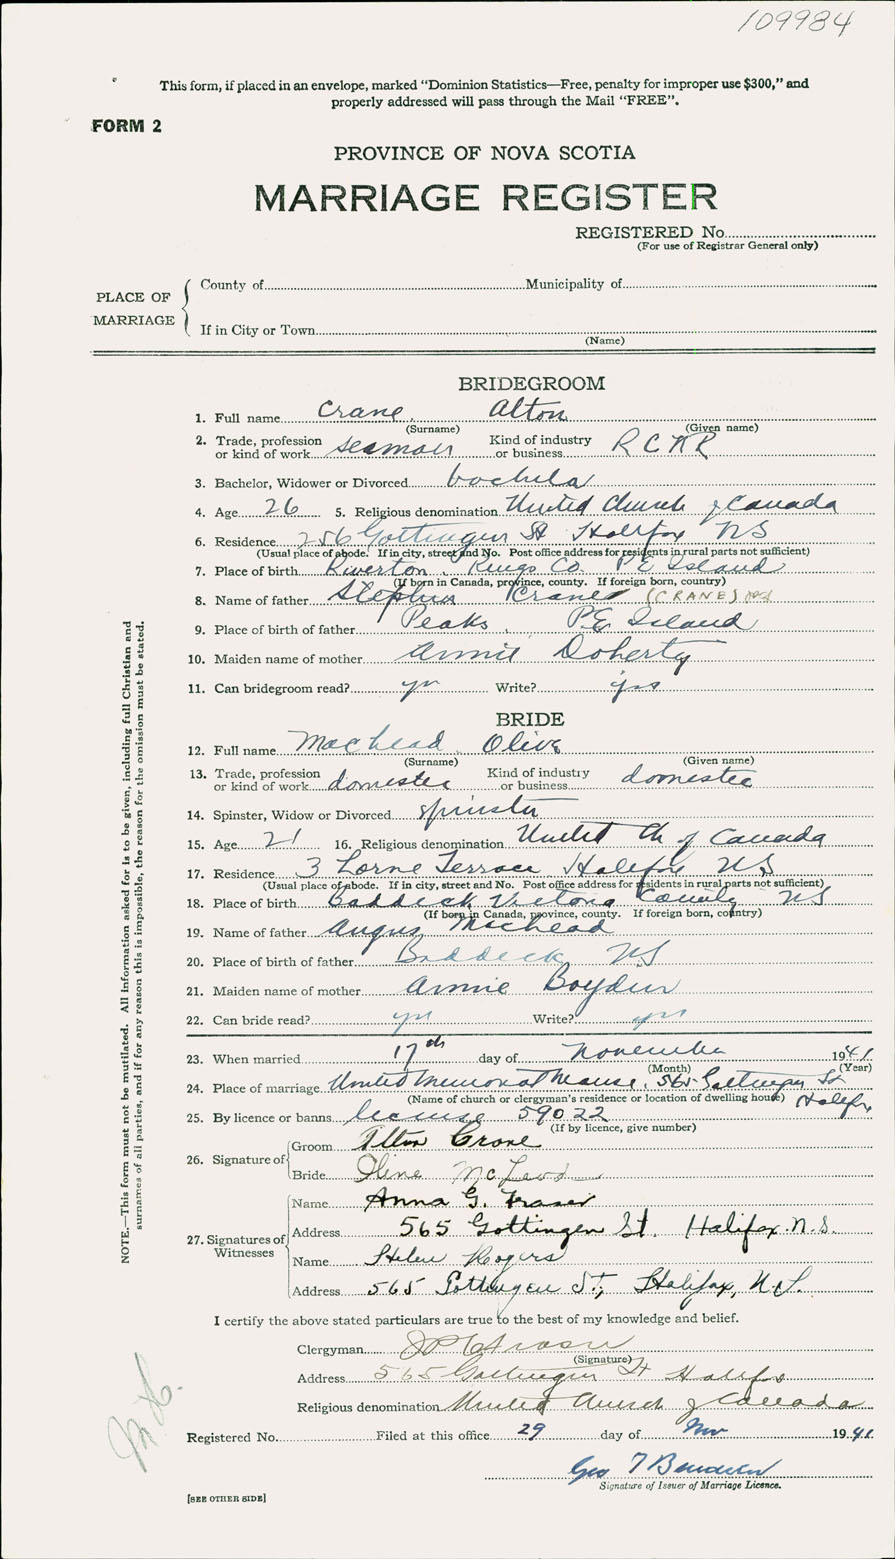 109984
This form, if placed in an envelope, marked “Dominion Statistics—Free, penalty for improper use $300,” and
properly addressed will pass through the Mail “FREE”.
FORM 2
PROVINCE OF NOVA SCOTIA
MARRIAGE REGISTER
REGISTERED No.
(For use of Registrar General only)
PLACE OF MARRIAGE
County of Municipality of
If in City or Town
(Name)
BRIDEGROOM
1. Full name Crane, Alton
(Surname) (Given name)
2. Trade, profession or kind of work seaman Kind of industry or business R C N R
3. Bachelor, Widower or Divorced bachelor
4. Age 26 5. Religious denomination United Church of Canada
6. Residence 256 Gottingen St Halifax NS
(Usual place of abode. If in city, street and No. Post office address for residents in rural parts not sufficient)
7. Place of birth Riverton, Kings Co. P E Island
(If born in Canada, province, county. If foreign born, country)
8. Name of father Stephen Crane (CRANE)
9. Place of birth of father Peaks, P.E. Island
10. Maiden name of mother Annie Doherty
11. Can bridegroom read? yes Write? yes
BRIDE
12. Full name MacLeod Olive
(Surname) (Given name)
13. Trade, profession or kind of work domestic Kind of industry or business domestic
14. Spinster, Widow or Divorced spinster
15. Age 21 16. Religious denomination United Ch of Canada
17. Residence 3 Lorne Terrace Halifax NS
(Usual place of abode. If in city, street and No. Post office address for residents in rural parts not sufficient)
18. Place of birth Baddeck Victoria County NS
(If born in Canada, province, county. If foreign born, country)
19. Name of father Angus MacLeod
20. Place of birth of father Baddeck NS
21. Maiden name of mother Annie
22. Can bride read? yes Write? yes
23. When married 17th day of November 1941
(Month) (Year)
24. Place of marriage United Memorial Manse, 565 Gottingen St Halifax
(Name of church or clergyman’s residence or location of dwelling house)
25. By licence or banns license 59022
(If by licence, give number)
26. Signature of
Groom Alton Crane
Bride Oline McLeod
27. Signatures of Witnesses
Name Anna G. Fraser
Address 565 Gottingen St. Halifax. N.S.
Name Helen Rogers
Address 565 Gottingen St., Halifax, N.S.
I certify the above stated particulars are true to the best of my knowledge and belief.
Clergyman Fraser
(Signature)
Address 565 Gottingen St Halifax
Religious denomination United Church of Canada
Registered No. Filed at this office 29 day of Nov 1941
Geo T
Signature of Issuer of Marriage Licence.
[SEE OTHER SIDE]
NOTE.—This form must not be mutilated. All information asked for is to be given, including full Christian and
surnames of all parties, and if for any reason this is impossible, the reason for the omission must be stated.